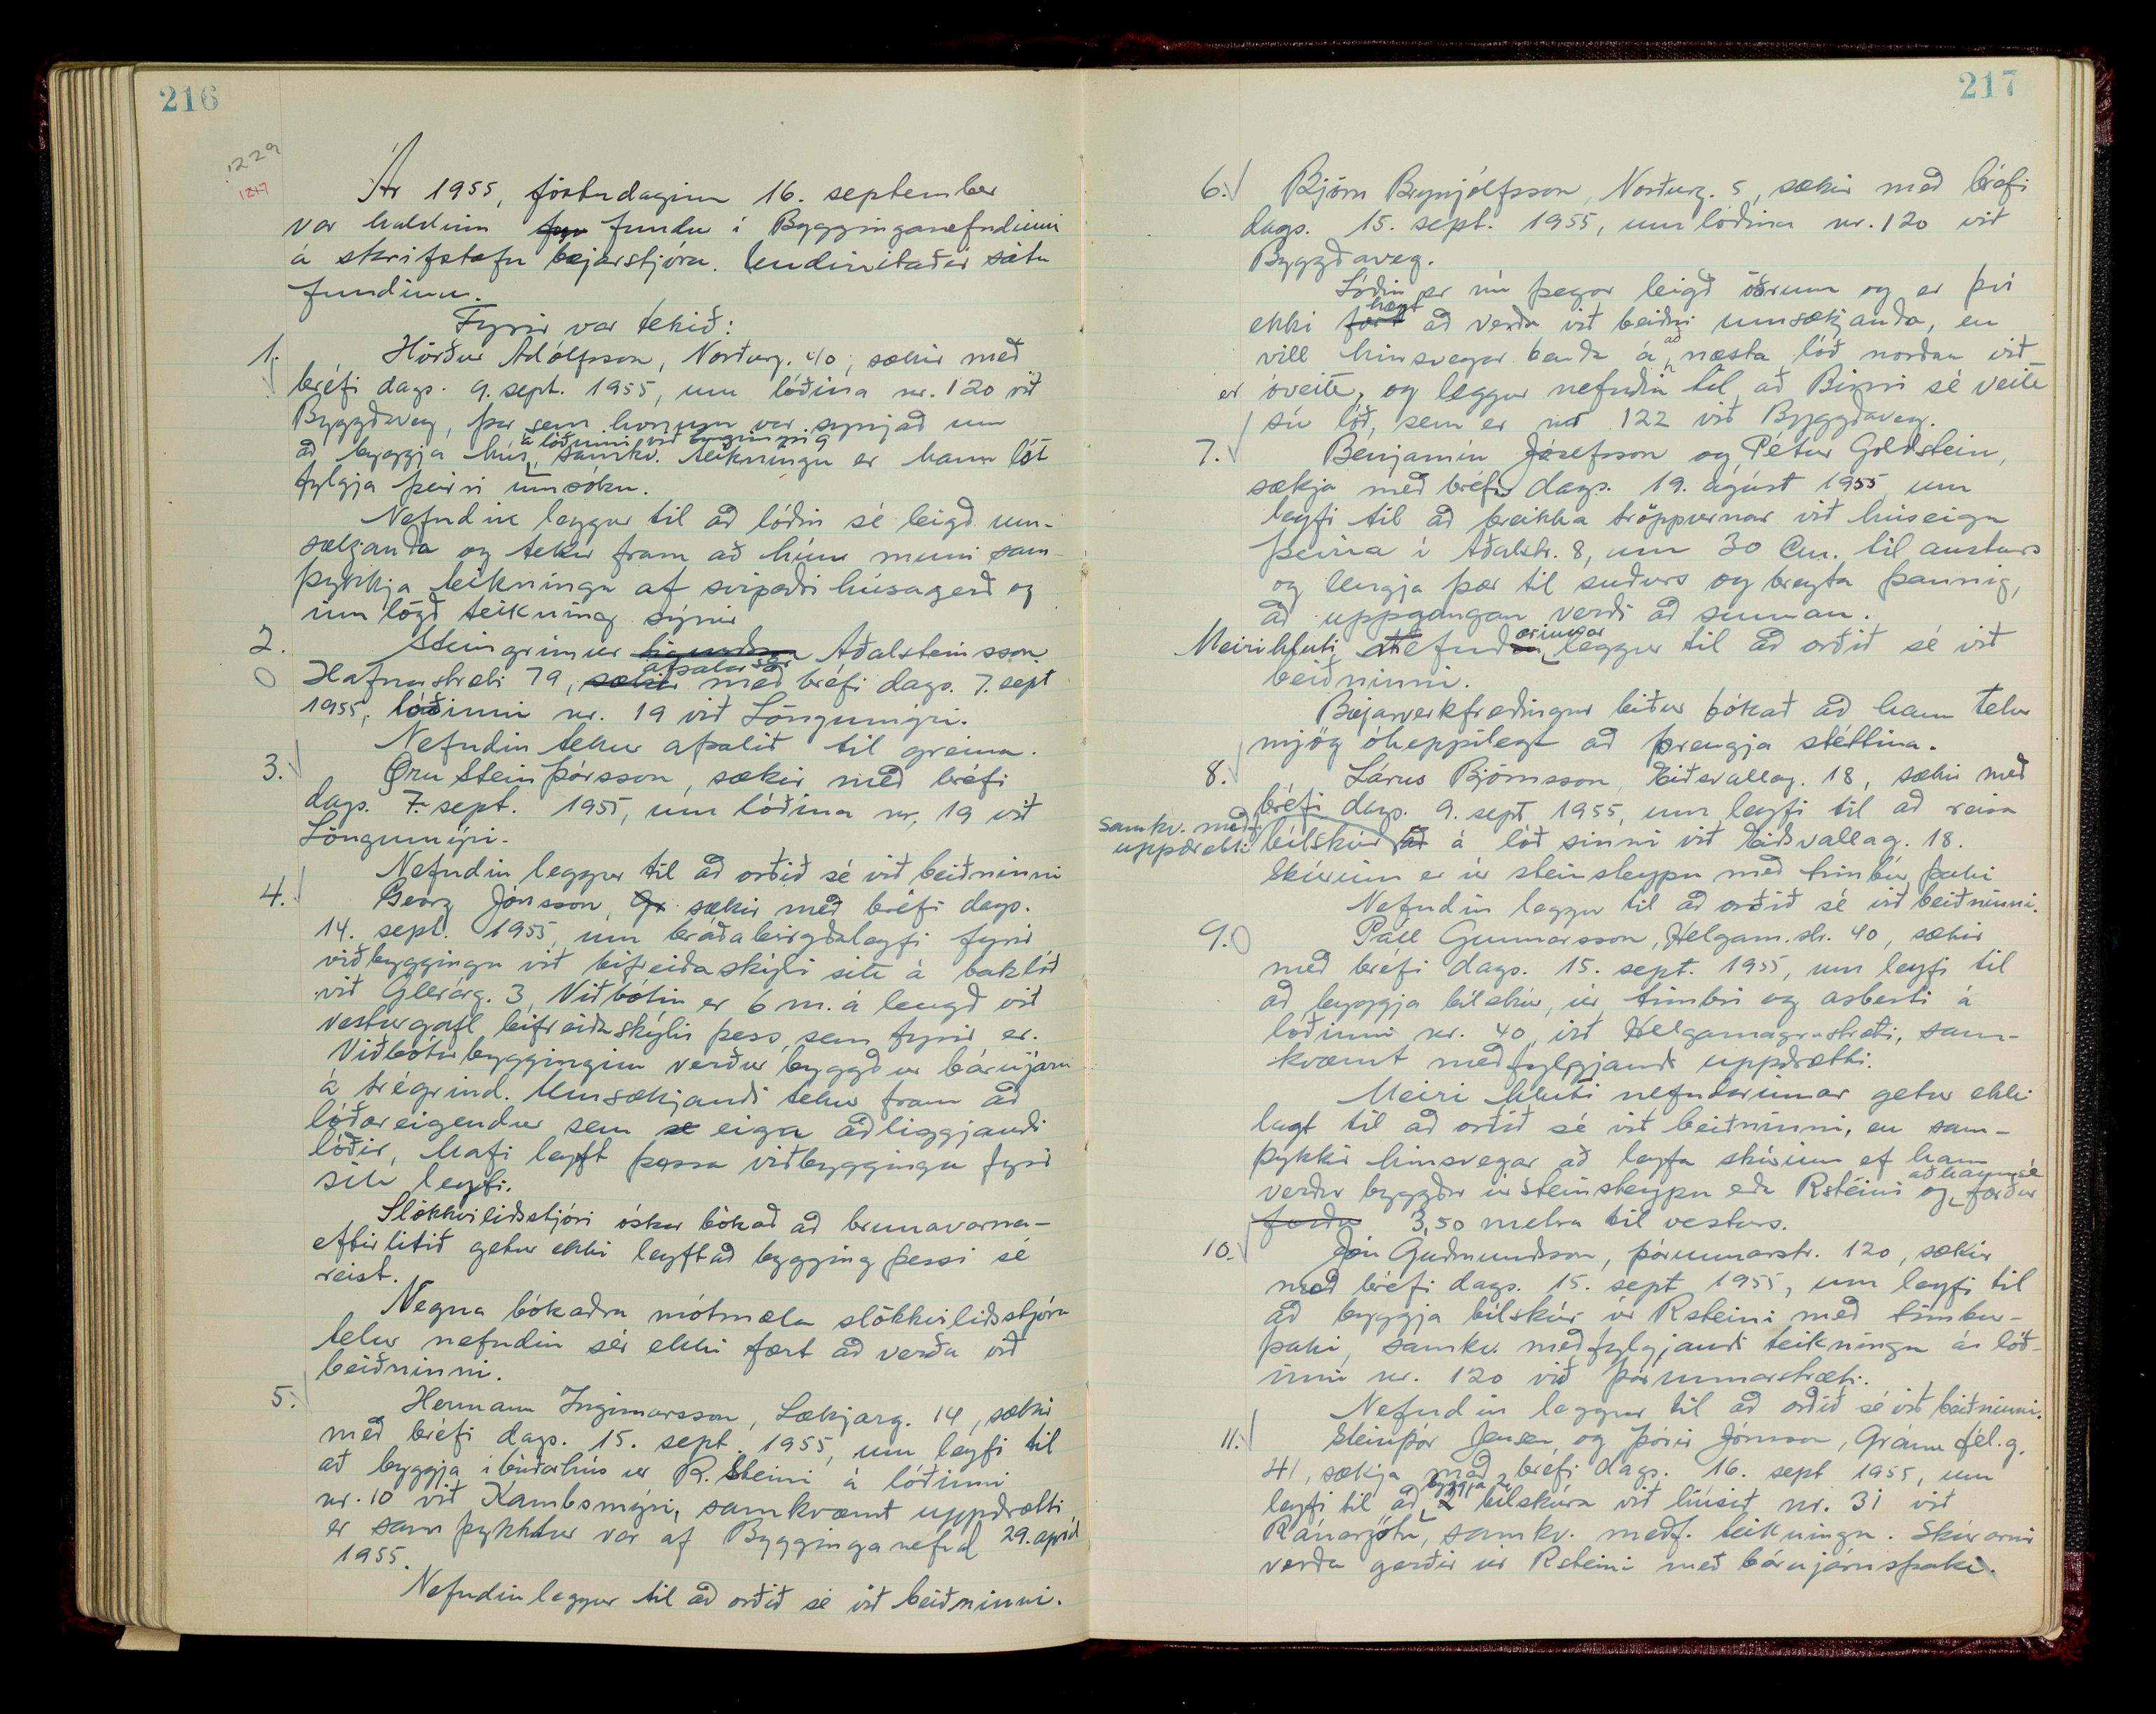 216
1229
1217
Ár 1955, föstudaginn 16. september
var haldinn fyr fundur í Bygginganefndinni
á skrifstofu bæjarstjóra. Undirritaðir sátu
fundinn.
Fyrir var tekið:
1. Hörður Adólfsson, Norðurg. 40, sækir með
bréfi dags. 9. sept. 1955, um lóðina nr. 120 við
Byggðaveg, þar sem honum var synjað um
að byggja hús á lóðinni við samkv. teikningu er hann lét
fylgja þeirri umsókn.
Nefndin leggur til að lóðin sé leigð um-
sækjanda og tekur fram að hún muni sam-
þykkja teikningu af svipaðri húsagerð og
innlögð teikning sýnir
2. Steingrímur Aðalsteinsson
Hafnarstræti 79, sækir afsalar sér með bréfi dags. 7. sept
1955, lóðinni nr. 19 við Löngumýri.
Nefndin tekur afsalið til greina.
3. Örn Steinþórsson, sækir með bréfi
dags. 7. sept. 1955, um lóðina nr. 19 við
Löngumýri.
Nefndin leggur til að orðið sé við beiðninni
4. Georg Jónsson, Gr sækir með bréfi dags.
14. sept. 1955, um bráðabirgðaleyfi fyrir
viðbyggingu við bifreiðaskýli sitt á baklóð
við Glerárg. 3, Viðbótin er 6 m. á lengd við
vesturgafl bifreiðaskýlis þess, sem fyrir er.
Viðbótarbyggingin verður byggð úr bárujárni
á trégrind. Umsækjandi tekur fram að
lóðareigendur sem se eiga aðliggjandi
lóðir, hafi leyft þessa viðbyggingu fyrir
sitt leyti.
Slökkviliðsstjóri óskar bókað að brunavarna-
eftirlitið getur ekki leyft að bygging þessi sé
reist.
Vegna bókaðra mótmæla slökkviliðsstjóra
telur nefndin sér ekki fært að verða við
beiðninni.
5. Hermann Ingimarsson, Lækjarg. 14, sækir
með bréfi dags. 15. sept. 1955, um leyfi til
að byggja íbúðarhús úr R. Steini á lóðinni
nr. 10 við Kambsmýri, samkvæmt uppdrætti
er samþykktur var af Bygginganefnd 29. apríl
1955.
Nefndin leggur til að orðið sé við beiðninni.
217
6. Björn Brynjólfsson, Norðurg. 5, sækir með bréfi
dags. 15. sept. 1955, um lóðina nr. 120 við
Byggðaveg.
Lóðin er nú þegar leigð öðrum og er því
ekki fært hægt að verða við beiðni umsækjanda, en
vill hinsvegar benda á að næsta lóð norðan við
er óveitt, og leggur nefndin til að Birni sé veitt
sú lóð, sem er nr 122 við Byggðaveg.
7. Benjamín Jósefsson og Pétur Goldstein,
sækja með bréfi dags. 19. ágúst 1955 um
leyfi til að breikka tröppurnar við húseign
þeirra í Aðalstr. 8, um 30 Cm. til austurs
og lengja þær til suðurs og breyta þannig,
að uppgangan verði að sunnan.
Meirihluti nefndarinnar leggur til að orðið sé við
beiðninni.
Bæjarverkfræðingur biður bókað að hann telur
mjög óheppilegt að þrengja stéttina.
8. Lárus Björnsson, Eiðsvallag. 18, sækir með
bréfi dags. 9. sept 1955, um leyfi til að reisa
samkv. meðf. uppdrætti bílskúr að á lóð sinni við Eiðsvallag. 18.
Skúrinn er úr steinsteypu með timbur þaki
Nefndin leggur til að orðið sé við beiðninni.
9. Páll Gunnarsson, Helgam.str. 40, sækir
með bréfi dags. 15. sept. 1955, um leyfi til
að byggja bílskúr, úr timbri og asbesti á
lóðinni nr. 40 við Helgamagrastræti, sam-
kvæmt meðfylgjandi uppdrætti.
Meiri hluti nefndarinnar getur ekki
lagt til að orðið sé við beiðninni, en sam-
þykkir hinsvegar að leyfa skúrinn ef hann
verður byggður úr steinsteypu eða Rsteini og að hann sé færður
færður 3,50 metra til vesturs.
10. Jón Guðmundsson, Þórunnarstr. 120, sækir
með bréfi dags. 15. sept 1955, um leyfi til
að byggja bílskúr úr Rsteini með timbur-
þaki, samkv. meðfylgjandi teikningu á lóð-
inni nr. 120 við Þórunnarstræti.
Nefndin leggur til að orðið sé við beiðninni.
11. Steinþór Jensen og Þórir Jónsson, Gránufél.g.
41, sækja með bréfi dags. 16. sept 1955, um
leyfi til að byggja 2 bílskúra við húsið nr. 31 við
Ránargötu, samkv. meðf. teikningu. Skúrarnir
verða gerðir úr Rsteini með bárujárnsþaki.